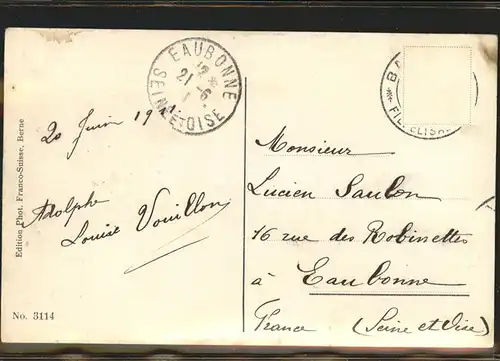 EAUBONNE
12 *
21 - 6
SEINE-ET-OISE
20 Juin 19
Adolphe
Louise Vouillon
Monsieur
Lucien Saulon
16 rue des Robinettes
à Eaubonne
France (Seine et Oise)
Edition Phot. Franco-Suisse, Berne
No. 3114